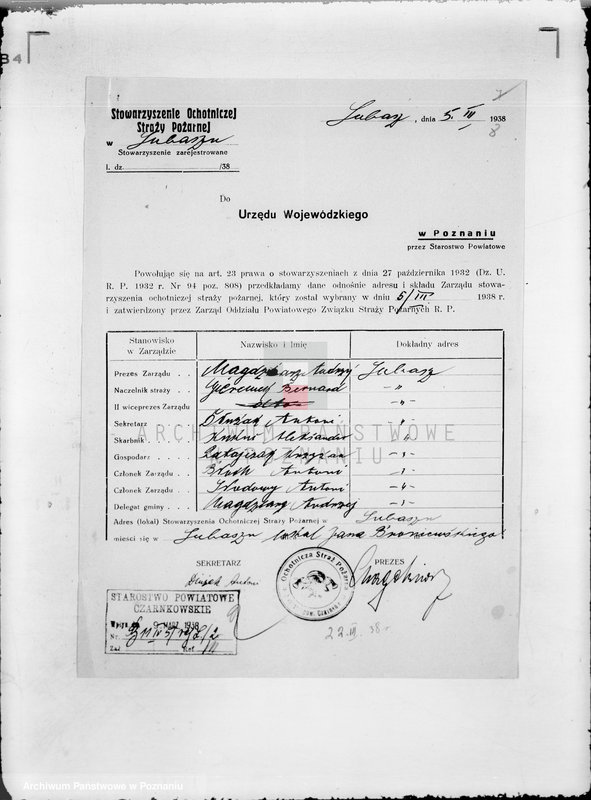 Stowarzyszenie Ochotniczej
Straży Pożarnej
w Lubaszu
Stowarzyszenie zarejestrowane
l. dz. /38
Lubasz, dnia 5. III 1938
8
Do
Urzędu Wojewódzkiego
w Poznaniu
przez Starostwo Powiatowe
Powołując się na art. 23 prawa o stowarzyszeniach z dnia 27 października 1932 (Dz. U.
R. P. 1932 r. Nr 94 poz. 808) przedkładamy dane odnośnie adresu i składu Zarządu stowa-
rzyszenia ochotniczej straży pożarnej, który został wybrany w dniu 5/III 1938 r.
i zatwierdzony przez Zarząd Oddziału Powiatowego Związku Straży Pożarnych R. P.
Stanowisko w Zarządzie Nazwisko i Imię Dokładny adres
Prezes Zarządu . . Magdziarz Andrzej Lubasz
Naczelnik straży . . Bernard - " -
II wiceprezes Zarządu - " -
Sekretarz Antoni - " -
Skarbnik Aleksander - " -
Gospodarz . . Ratajczak - " -
Członek Zarządu . . Antoni - " -
Członek Zarządu . . Antoni - " -
Delegat gminy . . . Magdziarz Andrzej - " -
Adres (lokal) Stowarzyszenia Ochotniczej Straży Pożarnej w Lubaszu
mieści się w Lubaszu lokal Jana Broniewskiego
SEKRETARZ
PREZES
Antoni
Ochotnicza Straż Pożarna
STAROSTWO POWIATOWE
CZARNKOWSKIE
9 MARZ 1938
Nr.
Zał.
22. III. 38 r.
ARCHIWUM PAŃSTWOWE
W POZNANIU
Archiwum Państwowe w Poznaniu